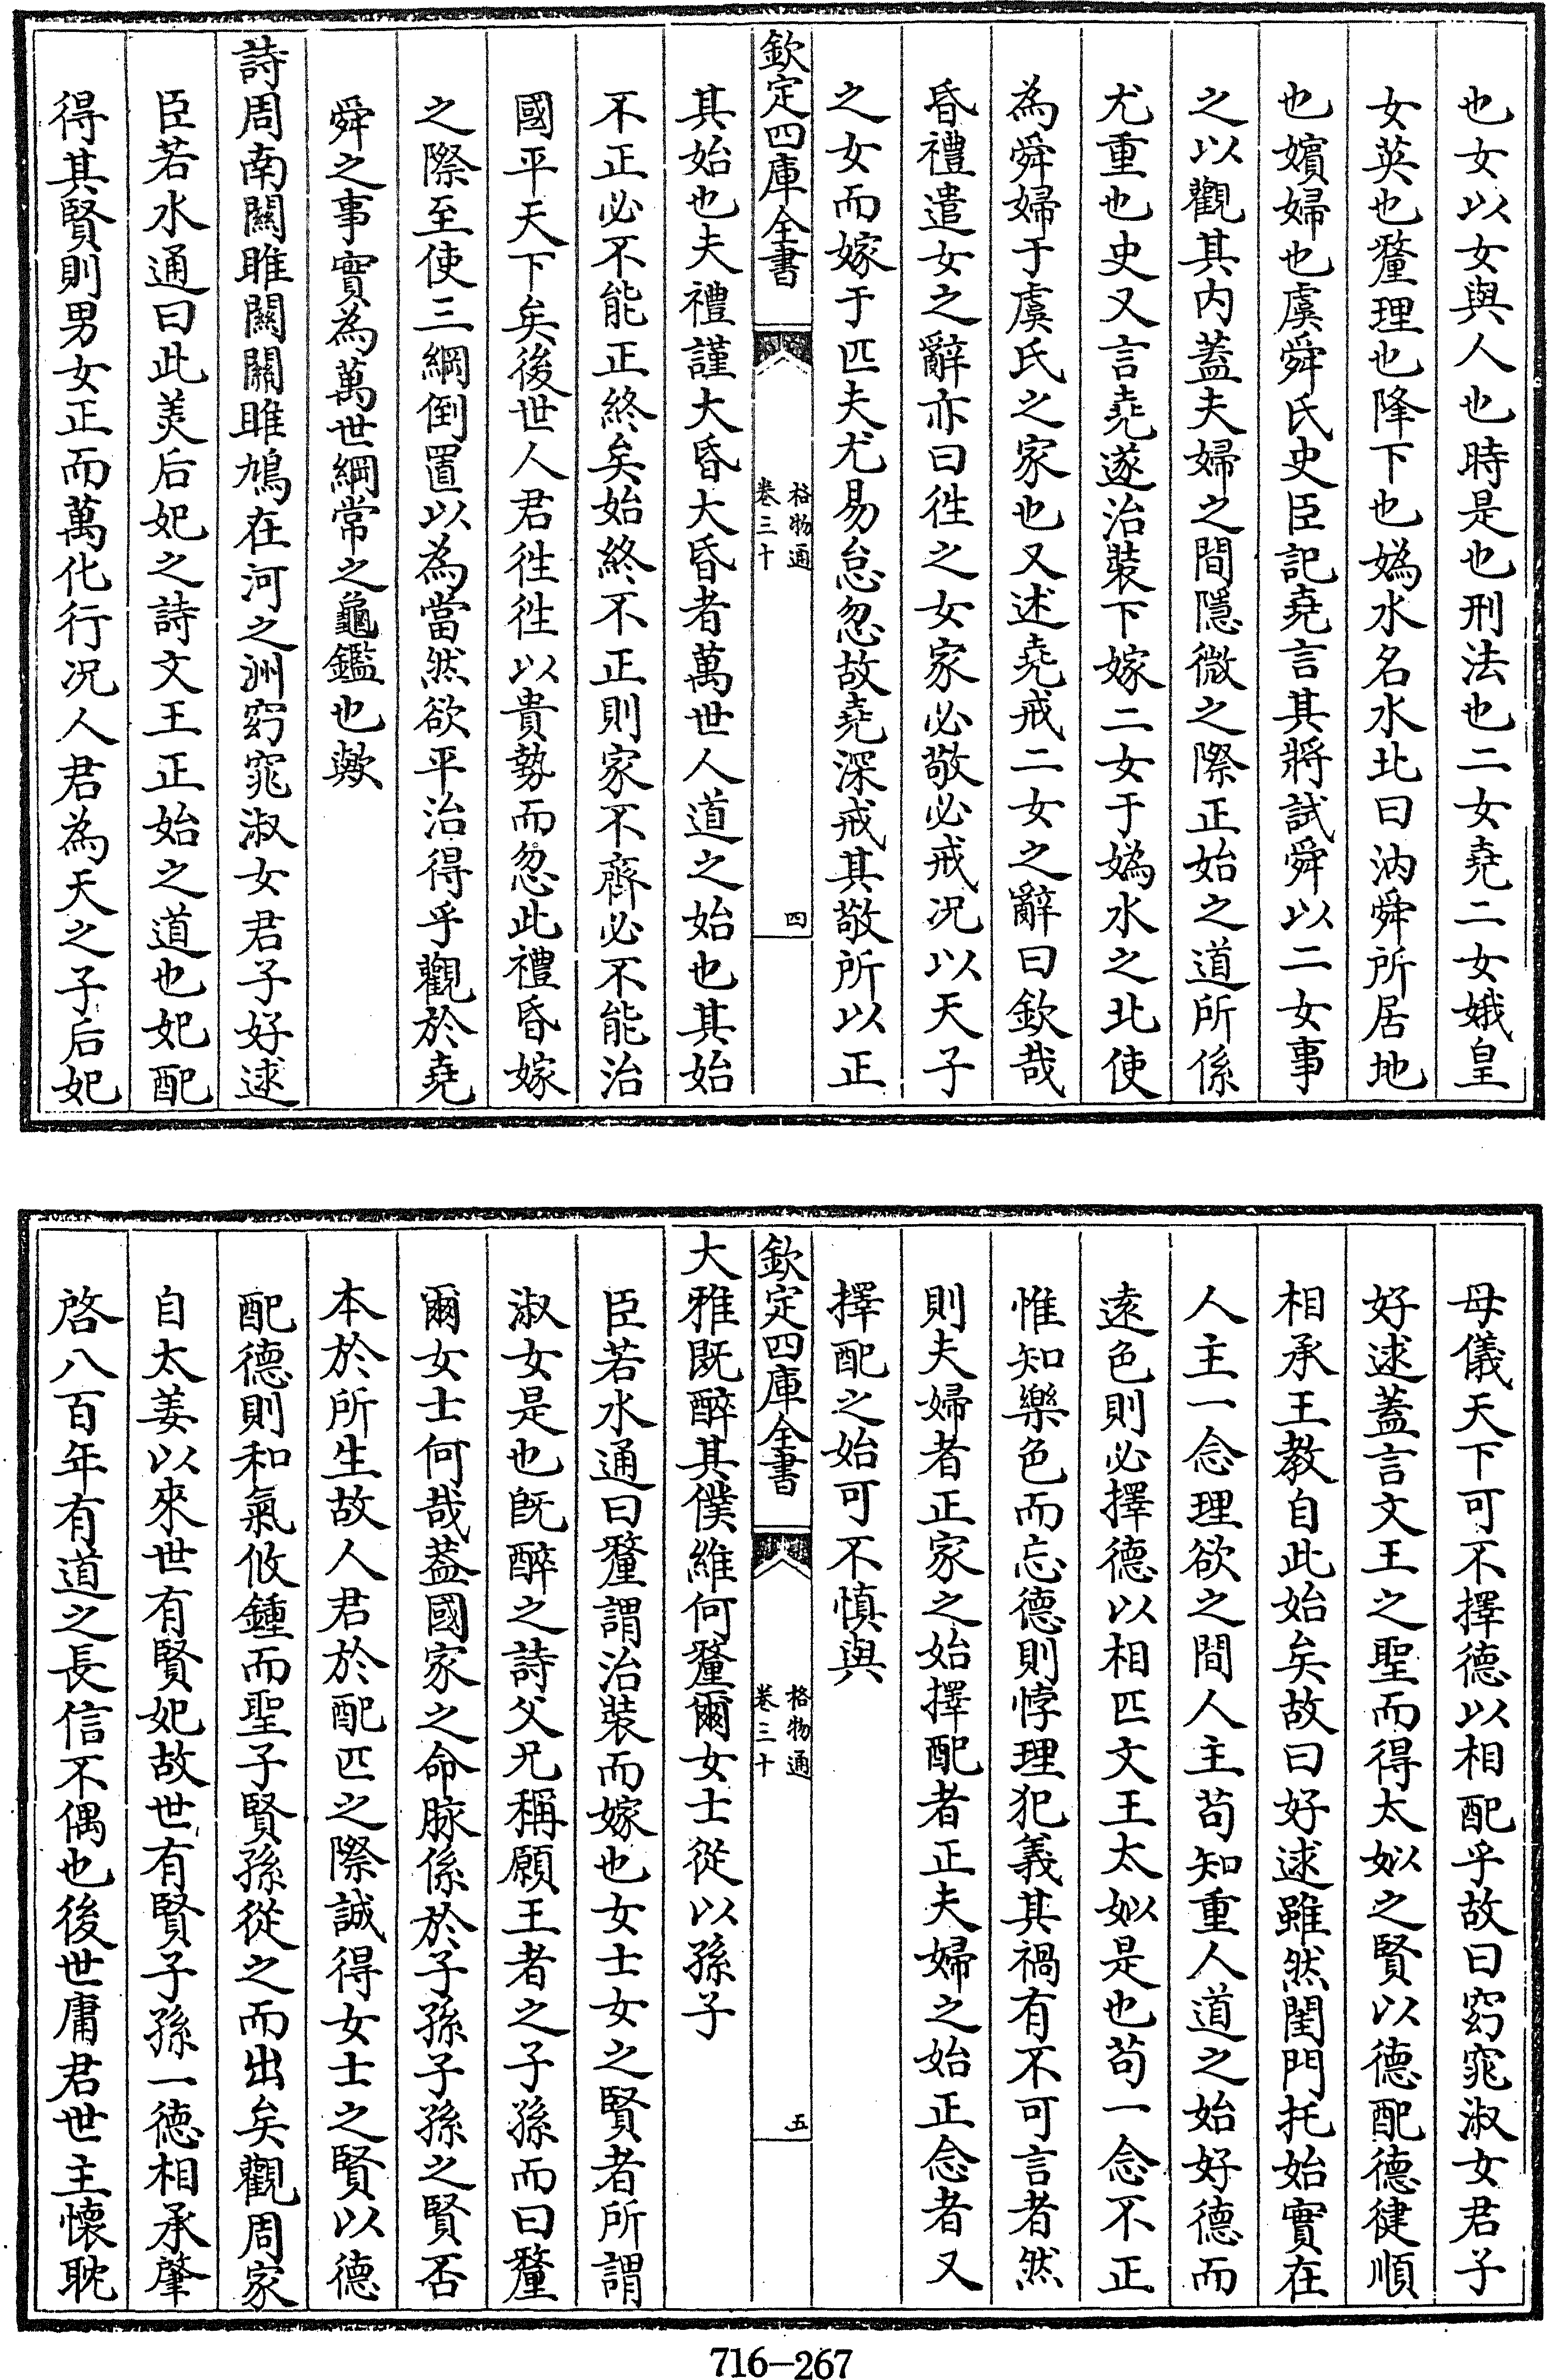 也女以女與人也時是也刑法也二女堯二女娥皇
女英也釐理也降下也媯水名水北曰汭舜所居地
也嬪婦也虞舜氏史臣記堯言其將試舜以二女事
之以觀其内蓋夫婦之間隱微之際正始之道所係
尤重也史又言堯遂治裝下嫁二女于媯水之北使
為舜婦于虞氏之家也又述堯戒二女之辭曰欽哉
昏禮遣女之辭亦曰徃之女家必敬必戒况以天子
之女而嫁于匹夫尤易怠忽故堯深戒其敬所以正
欽定四庫全書
格物通
卷三十
四
其始也夫禮謹大昏大昏者萬世人道之始也其始
不正必不能正終矣始終不正則家不齊必不能治
國平天下矣後世人君徃徃以貴勢而忽此禮昏嫁
之際至使三綱倒置以為當然欲平治得乎觀於堯
舜之事實為萬世綱常之龜鑑也歟
詩周南關雎關關雎鳩在河之洲窈窕淑女君子好逑
臣若水通曰此美后妃之詩文王正始之道也妃配
得其賢則男女正而萬化行况人君為天之子后妃
母儀天下可不擇德以相配乎故曰窈窕淑女君子
好逑蓋言文王之聖而得太姒之賢以德配德健順
相承王教自此始矣故曰好逑雖然閨門托始實在
人主一念理欲之間人主苟知重人道之始好德而
逺色則必擇德以相匹文王太姒是也苟一念不正
惟知樂色而忘德則悖理犯義其禍有不可言者然
則夫婦者正家之始擇配者正夫婦之始正念者又
擇配之始可不慎與
欽定四庫全書
格物通
卷三十
五
大雅既醉其僕維何釐爾女士從以孫子
臣若水通曰釐謂治裝而嫁也女士女之賢者所謂
淑女是也既醉之詩父兄稱願王者之子孫而曰釐
爾女士何哉蓋國家之命脉係於子孫子孫之賢否
本於所生故人君於配匹之際誠得女士之賢以德
配德則和氣攸鍾而聖子賢孫從之而出矣觀周家
自太姜以來世有賢妃故世有賢子孫一德相承肇
啓八百年有道之長信不偶也後世庸君世主懷耽
716-267